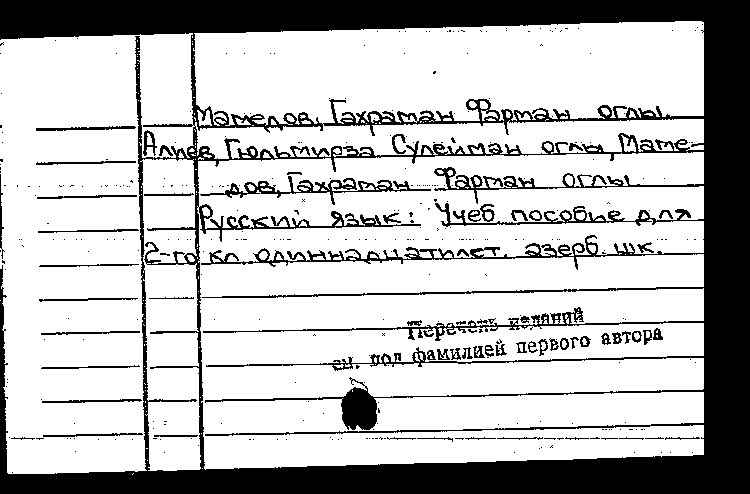 Мамедов, Гахраман Фарман оглы.
Алиев, Гюльмирза Сулейман оглы, Маме-
дов, Гахраман Фарман оглы.
Русский язык: Учеб. пособие для
2-го кл. одиннадцатилет. азерб. шк.
Перечень изданий
см. под фамилией первого автора